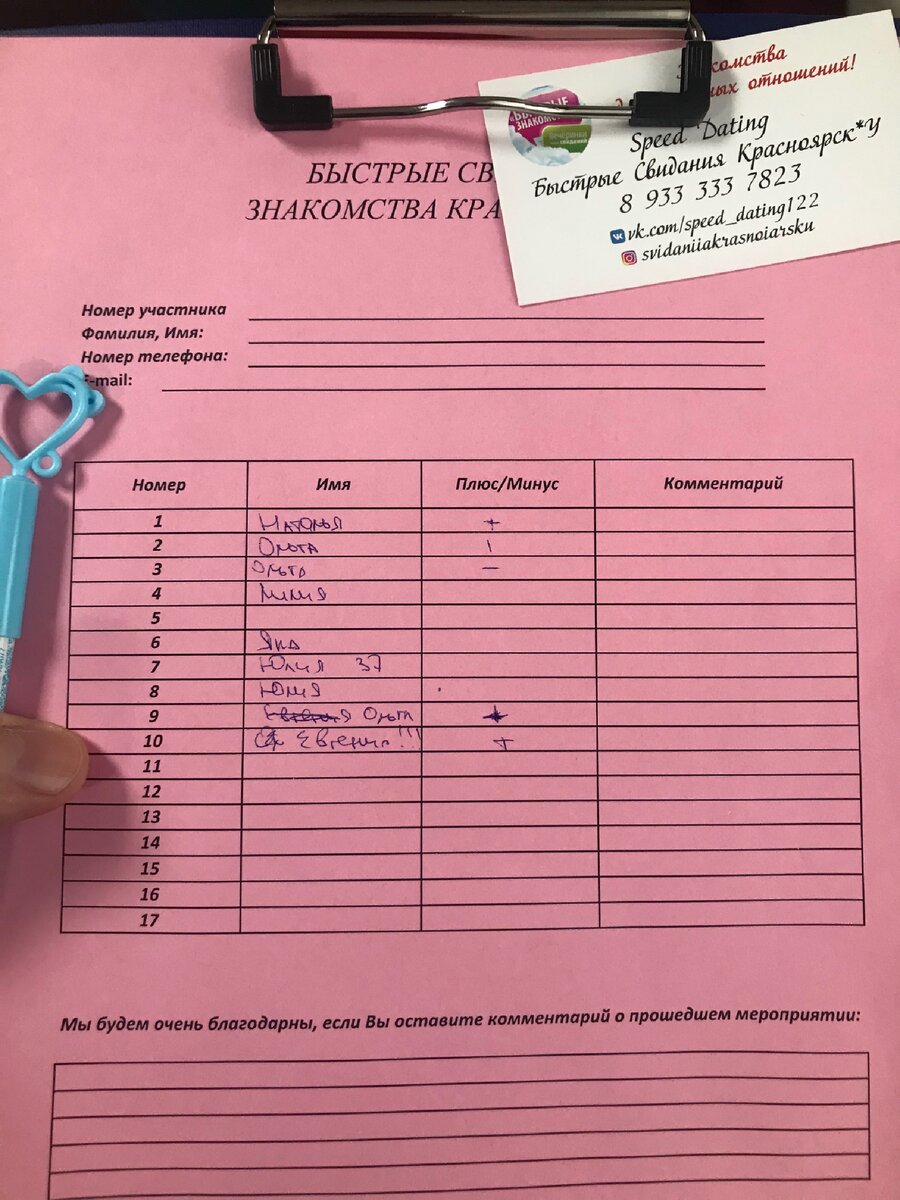 комства
ных отношений!
БЫСТРЫЕ
ЗНАКОМС
вечеринки
Speed Dating
Быстрые Свидания Красноярск*У
8 933 333 7823
vk.com/speed_dating122
svidaniiakrasnoiarsku
БЫСТРЫЕ СВ
ЗНАКОМСТВА КРА
Номер участника
Фамилия, Имя:
Номер телефона:
E-mail:
Номер Имя Плюс/Минус Комментарий
1 Наталья +
2 Ольга
3 Ольга –
4 Лилия
5
6 Яна
7 Юлия 37
8 Юлия
9 Ольга +
10 Евгения!!! +
11
12
13
14
15
16
17
Мы будем очень благодарны, если Вы оставите комментарий о прошедшем мероприятии: